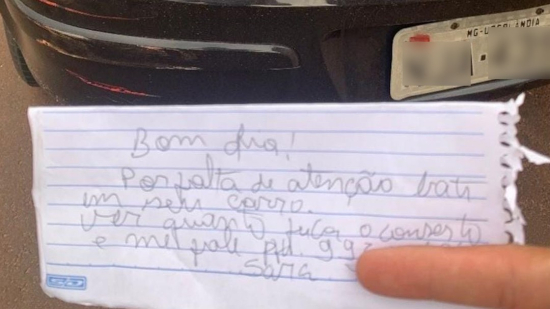 MG-UBERLÂNDIA
Bom dia!
Por falta de atenção bati
em seu carro.
Ver quanto fica o conserto
e me fale
Sara